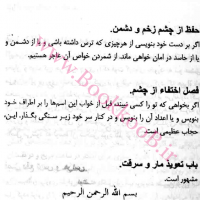 حفظ از چشم زخم و دشمن.
اگر بر دست خود بنویسی از هرچیزی که ترس داشته باشی و یا از دشمن و
یا از حاسد در امان خواهی ماند. از شمردن خواص آن عاجز هستیم.
فصل اختفاء از چشم.
اگر بخواهی که تو را کسی نبیند قبل از خواب این اسم‌ها را بر اطراف خود
بنویس و یا اعداد آن را بنویس و در کنار سر خود زیر سنگی بگذار. این،
حجاب عظیمی است.
باب تعویذ مار و سرقت.
مشهور است.
بسم الله الرحمن الرحیم